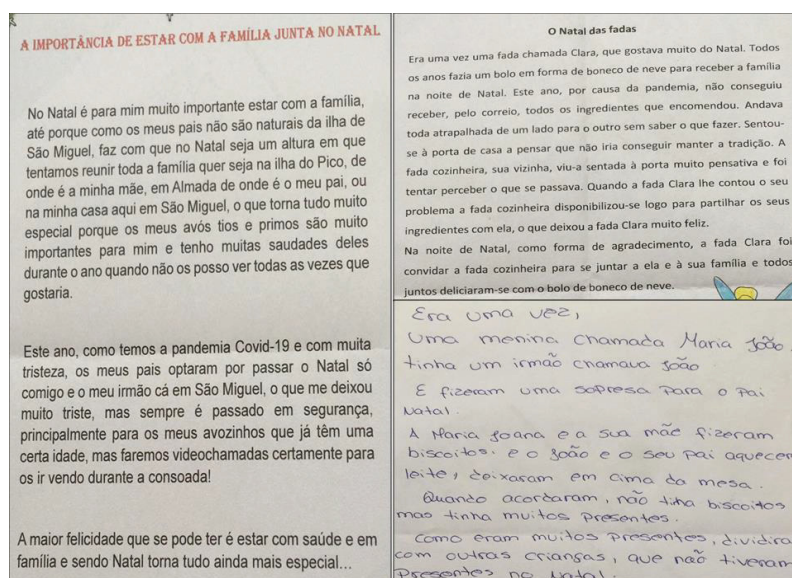 A IMPORTÂNCIA DE ESTAR COM A FAMÍLIA JUNTA NO NATAL
No Natal é para mim muito importante estar com a família,
até porque como os meus pais não são naturais da ilha de
São Miguel, faz com que no Natal seja um altura em que
tentamos reunir toda a família quer seja na ilha do Pico, de
onde é a minha mãe, em Almada de onde é o meu pai, ou
na minha casa aqui em São Miguel, o que torna tudo muito
especial porque os meus avós tios e primos são muito
importantes para mim e tenho muitas saudades deles
durante o ano quando não os posso ver todas as vezes que
gostaria.
Este ano, como temos a pandemia Covid-19 e com muita
tristeza, os meus pais optaram por passar o Natal só
comigo e o meu irmão cá em São Miguel, o que me deixou
muito triste, mas sempre é passado em segurança,
principalmente para os meus avozinhos que já têm uma
certa idade, mas faremos videochamadas certamente para
os ir vendo durante a consoada!
A maior felicidade que se pode ter é estar com saúde e em
família e sendo Natal torna tudo ainda mais especial...
O Natal das fadas
Era uma vez uma fada chamada Clara, que gostava muito do Natal. Todos
os anos fazia um bolo em forma de boneco de neve para receber a família
na noite de Natal. Este ano, por causa da pandemia, não conseguiu
receber, pelo correio, todos os ingredientes que encomendou. Andava
toda atrapalhada de um lado para o outro sem saber o que fazer. Sentou-
se à porta de casa a pensar que não iria conseguir manter a tradição. A
fada cozinheira, sua vizinha, viu-a sentada à porta muito pensativa e foi
tentar perceber o que se passava. Quando a fada Clara lhe contou o seu
problema a fada cozinheira disponibilizou-se logo para partilhar os seus
ingredientes com ela, o que deixou a fada Clara muito feliz.
Na noite de Natal, como forma de agradecimento, a fada Clara foi
convidar a fada cozinheira para se juntar a ela e à sua família e todos
juntos deliciaram-se com o bolo de boneco de neve.
Era uma vez,
Uma menina chamada Maria João.
tinha um irmão chamava João
E fizeram uma sopresa para o pai
Natal.
A Maria Joana e a sua mãe fizeram
biscoitos. e o João e o seu pai aquecer
leite, deixaram em cima da mesa.
Quando acordaram, não tinha biscoitos
mas tinha muitos presentes.
Como eram muitos presentes, dividira
com outras crianças, que não tiveram
Presentes no Natal.